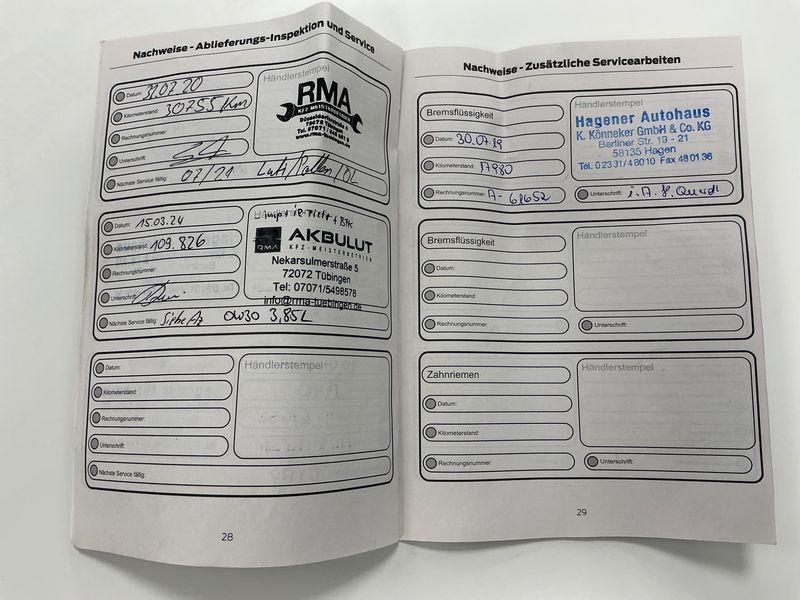 Nachweise - Ablieferungs-Inspektion und Service
Datum: 31.07.20
Kilometerstand: 30755 Km
Rechnungsnummer:
Unterschrift:
Nächste Service fällig: 07/21 Luft/Pollen/ÖL
Händlerstempel
RMA
KFZ MEISTERBETRIEB
72072 Tübingen
www.rma-tuebingen.de
Datum: 15.03.24
Kilometerstand: 109.826
Rechnungsnummer:
Unterschrift:
Nächste Service fällig: Siehe Az 0W30 3,85L
Händlerstempel
RMA AKBULUT
KFZ-MEISTERBETRIEB
Nekarsulmerstraße 5
72072 Tübingen
Tel: 07071/5498578
info@rma-tuebingen.de
Datum:
Kilometerstand:
Rechnungsnummer:
Unterschrift:
Nächste Service fällig:
Händlerstempel
28
Nachweise - Zusätzliche Servicearbeiten
Bremsflüssigkeit
Datum: 30.07.19
Kilometerstand: 17980
Rechnungsnummer: A-61652
Händlerstempel
Hagener Autohaus
K. Könneker GmbH & Co. KG
Berliner Str. 19 - 21
58135 Hagen
Tel. 02331/48010 Fax 480136
Unterschrift: i.A.
Bremsflüssigkeit
Datum:
Kilometerstand:
Rechnungsnummer:
Händlerstempel
Unterschrift:
Zahnriemen
Datum:
Kilometerstand:
Rechnungsnummer
Händlerstempel
Unterschrift:
29